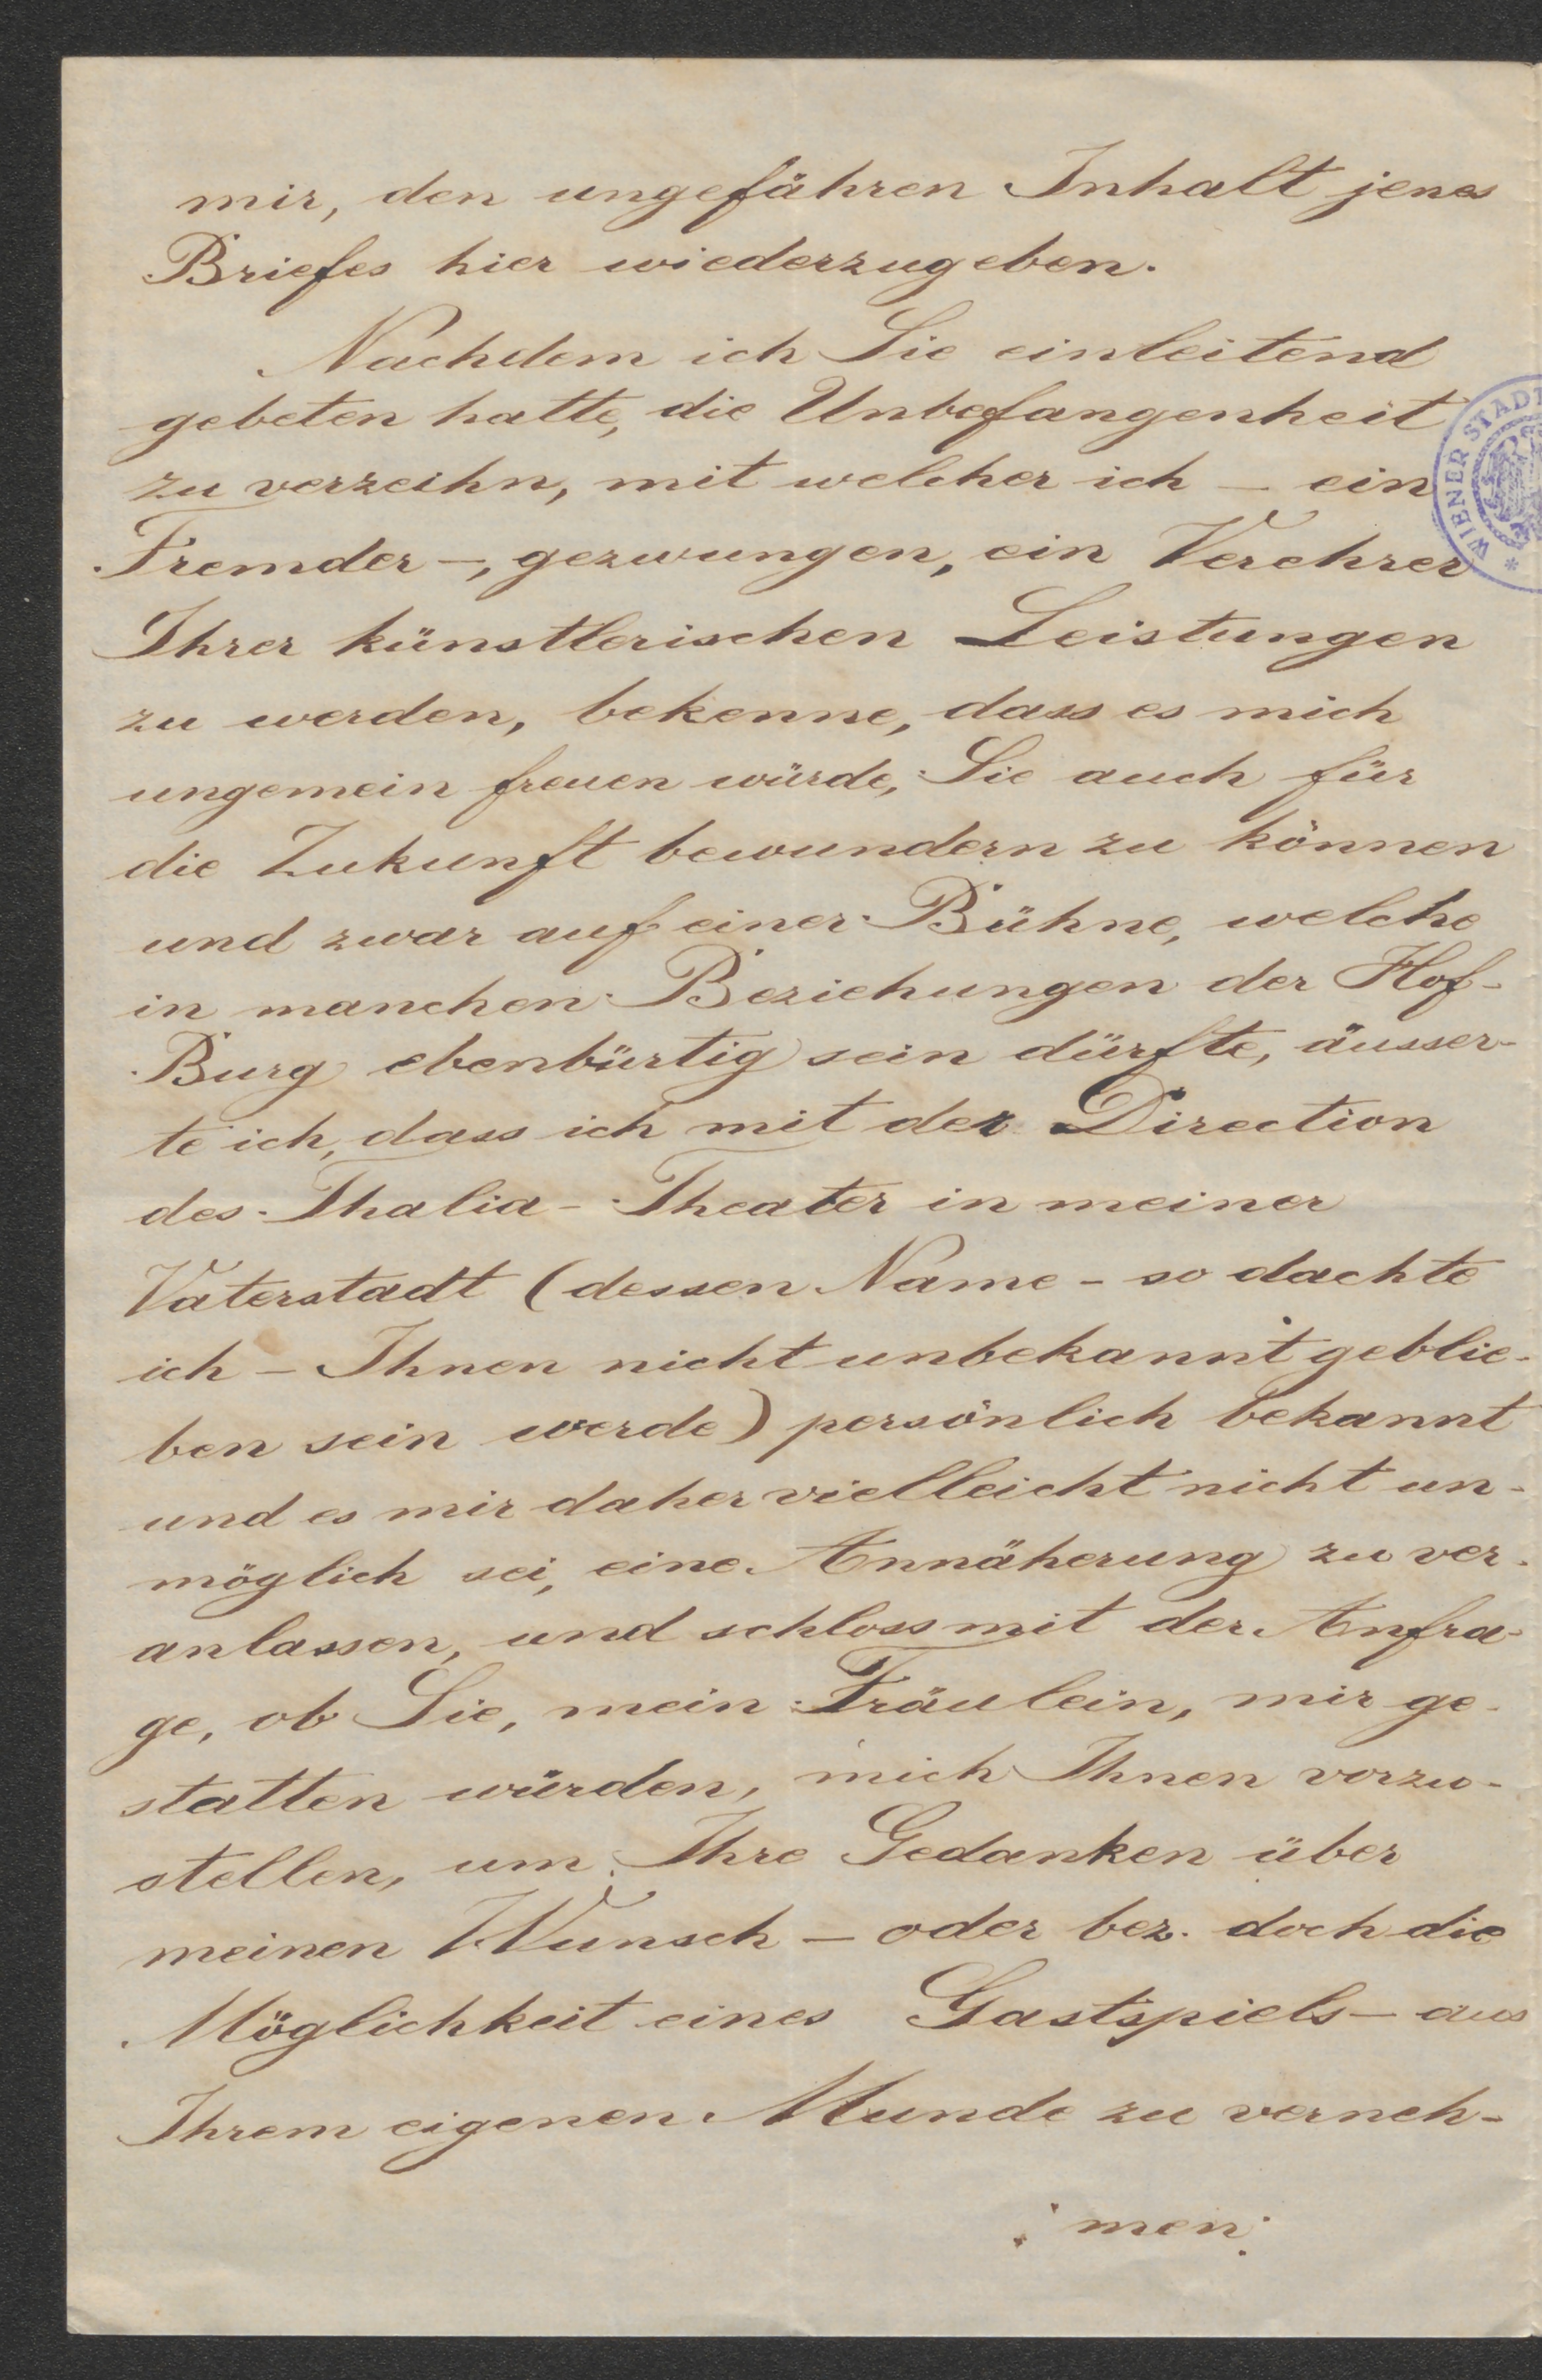 mir, den ungefähren Inhalt jenes
Briefes hier wiederzugeben.
Nachdem ich Sie einleitend
gebeten hatte, die Unbefangenheit
zu verzeihn, mit welcher ich – ein
Fremder –, gezwungen, ein Verehrer
Ihrer künstlerischen Leistungen
zu werden, bekenne, dass es mich
ungemein freuen würde, Sie auch für
die Zukunft bewundern zu können
und zwar auf einer Bühne, welche
in manchen Beziehungen der Hof-
Burg ebenbürtig sein dürfte, äusser-
te ich, dass ich mit der Direction
des Thalia-Theater in meiner
Vaterstadt (dessen Name – so dachte
ich – Ihnen nicht unbekannt geblie-
ben sein werde) persönlich bekannt
und es mir daher vielleicht nicht un-
möglich sei, eine Annäherung zu ver-
anlassen, und schloss mit der Anfra-
ge, ob Sie, mein Fräulein, mir ge-
statten würden, mich Ihnen vorzu-
stellen, um Ihre Gedanken über
meinen Wunsch – oder bez. doch die
Möglichkeit eines Gastspiels – aus
Ihrem eigenen Munde zu verneh-
men.
WIENER STADT